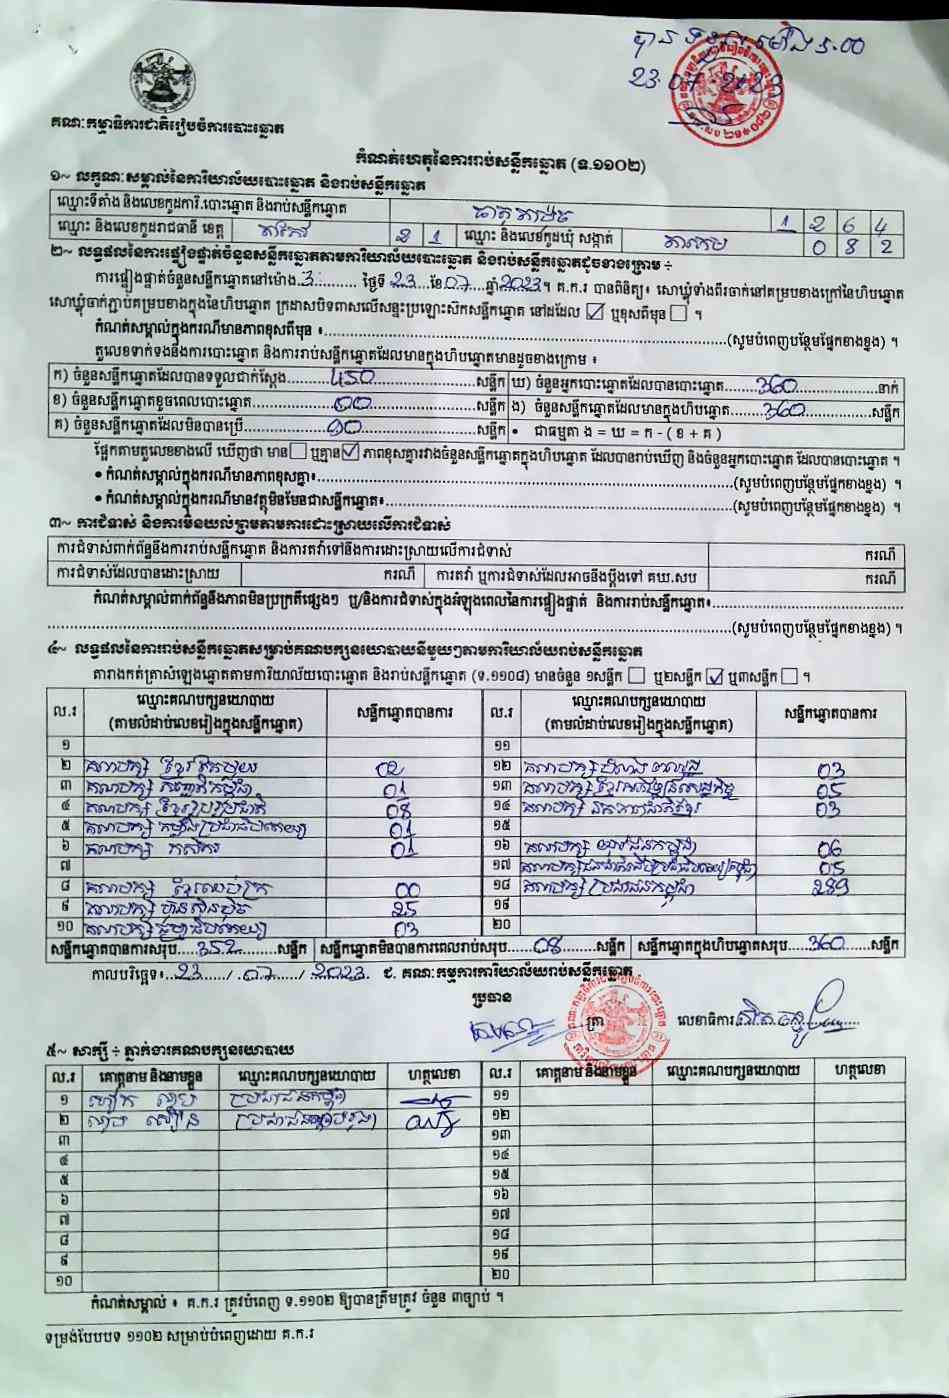 បាន ទទួល ម៉ោង ៤:00
23.07.2023
គណៈកម្មាធិការជាតិរៀបចំការបោះឆ្នោត
កំណត់ហេតុនៃការរាប់សន្លឹកឆ្នោត (ទ.១១០២)
១~ លក្ខណៈសម្គាល់នៃការិយាល័យបោះឆ្នោត និងរាប់សន្លឹកឆ្នោត
ឈ្មោះទីតាំង និងលេខកូដការិ.បោះឆ្នោត និងរាប់សន្លឹកឆ្នោត 1 2 6 4
ឈ្មោះ និងលេខកូដរាជធានី ខេត្ត តាកែវ 2 1 ឈ្មោះ និងលេខកូដឃុំ សង្កាត់ 0 8 2
២~ លទ្ធផលនៃការផ្ទៀងផ្ទាត់ចំនួនសន្លឹកឆ្នោតតាមការិយាល័យបោះឆ្នោត និងរាប់សន្លឹកឆ្នោតដូចខាងក្រោម ÷
ការផ្ទៀងផ្ទាត់ចំនួនសន្លឹកឆ្នោតនៅម៉ោង.3......... ថ្ងៃទី 23....ខែ07....ឆ្នាំ2023។ គ.ក.រ បានពិនិត្យ៖ សោឃ្លុំទាំងពីរចាក់នៅគម្របខាងក្រៅនៃហិបឆ្នោត
សោឃ្លុំចាក់ភ្ជាប់គម្របខាងក្នុងនៃហិបឆ្នោត ក្រដាសបិទពាសលើសន្ទះប្រឡោះស៊កសន្លឹកឆ្នោត នៅដដែល ☑ ឬខុសពីមុន ☐ ។
កំណត់សម្គាល់ក្នុងករណីមានភាពខុសពីមុន ៖...........(សូមបំពេញបន្ថែមផ្នែកខាងខ្នង) ។
តួលេខទាក់ទងនឹងការបោះឆ្នោត និងការរាប់សន្លឹកឆ្នោតដែលមានក្នុងហិបឆ្នោតមានដូចខាងក្រោម ៖
ក) ចំនួនសន្លឹកឆ្នោតដែលបានទទួលជាក់ស្តែង........450........សន្លឹក ឃ) ចំនួនអ្នកបោះឆ្នោតដែលបានបោះឆ្នោត.......360.......នាក់
ខ) ចំនួនសន្លឹកឆ្នោតខូចពេលបោះឆ្នោត........00........សន្លឹក ង) ចំនួនសន្លឹកឆ្នោតដែលមានក្នុងហិបឆ្នោត.......360.......សន្លឹក
គ) ចំនួនសន្លឹកឆ្នោតដែលមិនបានប្រើ........90........សន្លឹក • ជាធម្មតា ង = ឃ = ក - ( ខ + គ )
ផ្អែកតាមតួលេខខាងលើ ឃើញថា មាន ☐ ឬគ្មាន ☑ ភាពខុសគ្នារវាងចំនួនសន្លឹកឆ្នោតក្នុងហិបឆ្នោត ដែលបានរាប់ឃើញ និងចំនួនអ្នកបោះឆ្នោត ដែលបានបោះឆ្នោត ។
• កំណត់សម្គាល់ក្នុងករណីមានភាពខុសគ្នា៖...........(សូមបំពេញបន្ថែមផ្នែកខាងខ្នង) ។
• កំណត់សម្គាល់ក្នុងករណីមានវត្ថុមិនមែនជាសន្លឹកឆ្នោត៖...........(សូមបំពេញបន្ថែមផ្នែកខាងខ្នង) ។
៣~ ការជំទាស់ និងការមិនយល់ព្រមតាមការដោះស្រាយលើការជំទាស់
ការជំទាស់ពាក់ព័ន្ធនឹងការរាប់សន្លឹកឆ្នោត និងការតវ៉ាទៅនឹងការដោះស្រាយលើការជំទាស់ ករណី
ការជំទាស់ដែលបានដោះស្រាយ ករណី ការតវ៉ា ឬការជំទាស់ដែលអាចនឹងប្តឹងទៅ គឃ.សប ករណី
កំណត់សម្គាល់ពាក់ព័ន្ធនឹងភាពមិនប្រក្រតីផ្សេងៗ ឬ/និងការជំទាស់ក្នុងអំឡុងពេលនៃការផ្ទៀងផ្ទាត់ និងការរាប់សន្លឹកឆ្នោត៖...........
...........(សូមបំពេញបន្ថែមផ្នែកខាងខ្នង) ។
៤~ លទ្ធផលនៃការរាប់សន្លឹកឆ្នោតសម្រាប់គណបក្សនយោបាយនីមួយៗតាមការិយាល័យរាប់សន្លឹកឆ្នោត
តារាងកត់ត្រាសំឡេងឆ្នោតតាមការិយាល័យបោះឆ្នោត និងរាប់សន្លឹកឆ្នោត (ទ.១១០៨) មានចំនួន ១សន្លឹក ☐ ឬ២សន្លឹក ☑ ឬ៣សន្លឹក ☐ ។
ល.រ ឈ្មោះគណបក្សនយោបាយ (តាមលំដាប់លេខរៀងក្នុងសន្លឹកឆ្នោត) សន្លឹកឆ្នោតបានការ ល.រ ឈ្មោះគណបក្សនយោបាយ (តាមលំដាប់លេខរៀងក្នុងសន្លឹកឆ្នោត) សន្លឹកឆ្នោតបានការ
១ ១១
២ គណបក្ស ខ្មែរតែមួយ 02 ១២ គណបក្ស 03
៣ គណបក្ស 01 ១៣ គណបក្ស ខ្មែរអភិវឌ្ឍន៍សេដ្ឋកិច្ច 05
៤ គណបក្ស ខ្មែររួបរួមជាតិ 08 ១៤ គណបក្ស ឯកភាពជាតិខ្មែរ 03
៥ គណបក្ស កម្លាំងប្រជាធិបតេយ្យ 01 ១៥
៦ គណបក្ស កសិករ 01 ១៦ គណបក្ស យុវជនកម្ពុជា 06
៧ ១៧ គណបក្ស 05
៨ គណបក្ស ខ្មែរឈប់ក្រ 00 ១៨ គណបក្ស ប្រជាជនកម្ពុជា 289
៩ គណបក្ស ហ៊្វុនស៊ិនប៉ិច 25 ១៩
១០ គណបក្ស ធម្មាធិបតេយ្យ 03 ២០
សន្លឹកឆ្នោតបានការសរុប......352........សន្លឹក សន្លឹកឆ្នោតមិនបានការពេលរាប់សរុប......08......សន្លឹក សន្លឹកឆ្នោតក្នុងហិបឆ្នោតសរុប.....360.....សន្លឹក
កាលបរិច្ឆេទ៖..23...../..07...../ 2023. ជ. គណៈកម្មការការិយាល័យរាប់សន្លឹកឆ្នោត
ប្រធាន
ត្រា លេខាធិការ
៥~ សាក្សី ÷ ភ្នាក់ងារគណបក្សនយោបាយ
ល.រ គោត្តនាម និងនាមខ្លួន ឈ្មោះគណបក្សនយោបាយ ហត្ថលេខា ល.រ គោត្តនាម និងនាមខ្លួន ឈ្មោះគណបក្សនយោបាយ ហត្ថលេខា
១ ប្រជាជនកម្ពុជា ១១
២ ១២
៣ ១៣
៤ ១៤
៥ ១៥
៦ ១៦
៧ ១៧
៨ ១៨
៩ ១៩
១០ ២០
កំណត់សម្គាល់ ៖ គ.ក.រ ត្រូវបំពេញ ទ.១១០២ ឱ្យបានត្រឹមត្រូវ ចំនួន ៣ច្បាប់ ។
ទម្រង់បែបបទ ១១០២ សម្រាប់បំពេញដោយ គ.ក.រ